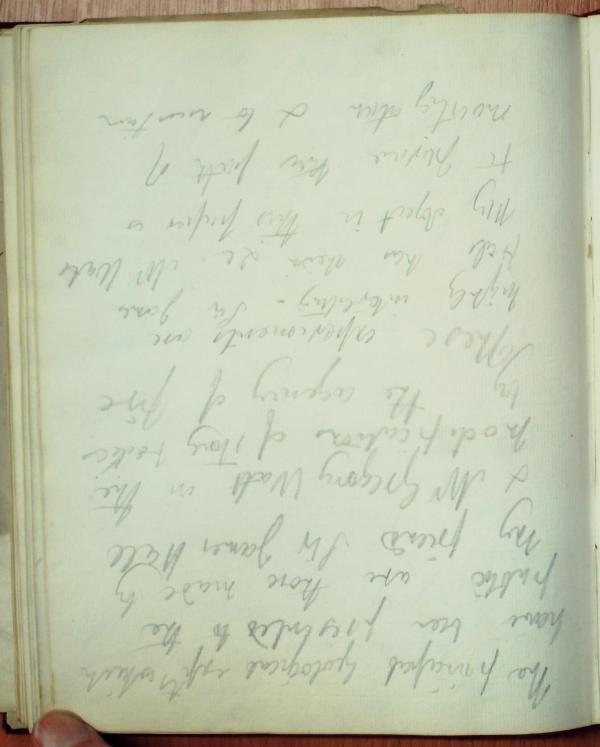 The principal Geological expts which
have been presented to the
public are those made by
my friend Sir James Hall
& Mr Gregory Watt on the
modifications of stony bodies
by the agency of fire
These experiments are
highly interesting - Sir James
Hall has shewn &c Mr Watt
My object in this paper is
to pursue this path of
investigation & to ascertain